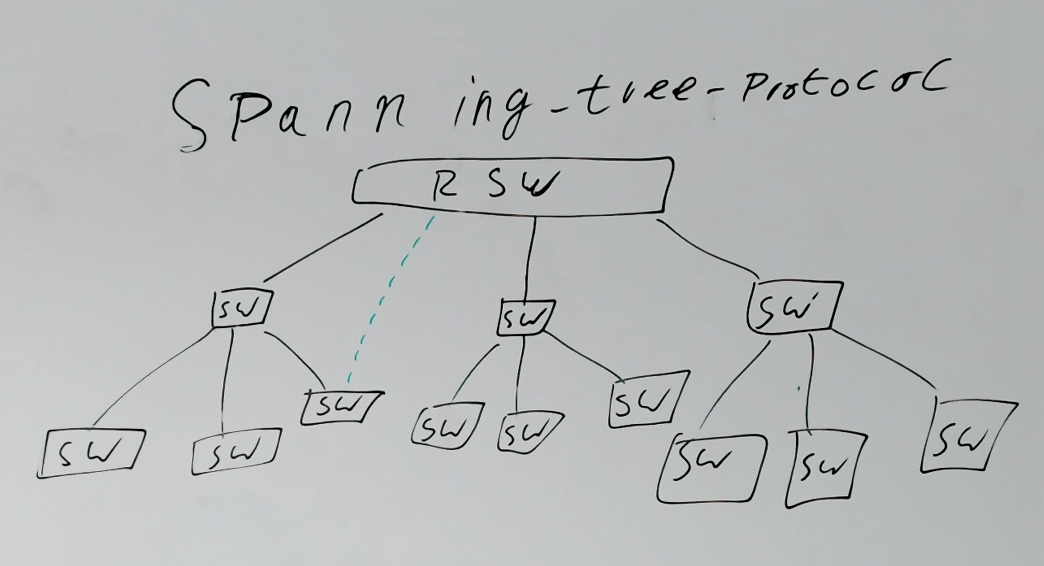 Spanning-tree-Protocol
R SW
SW SW SW
SW SW SW SW SW SW SW SW SW